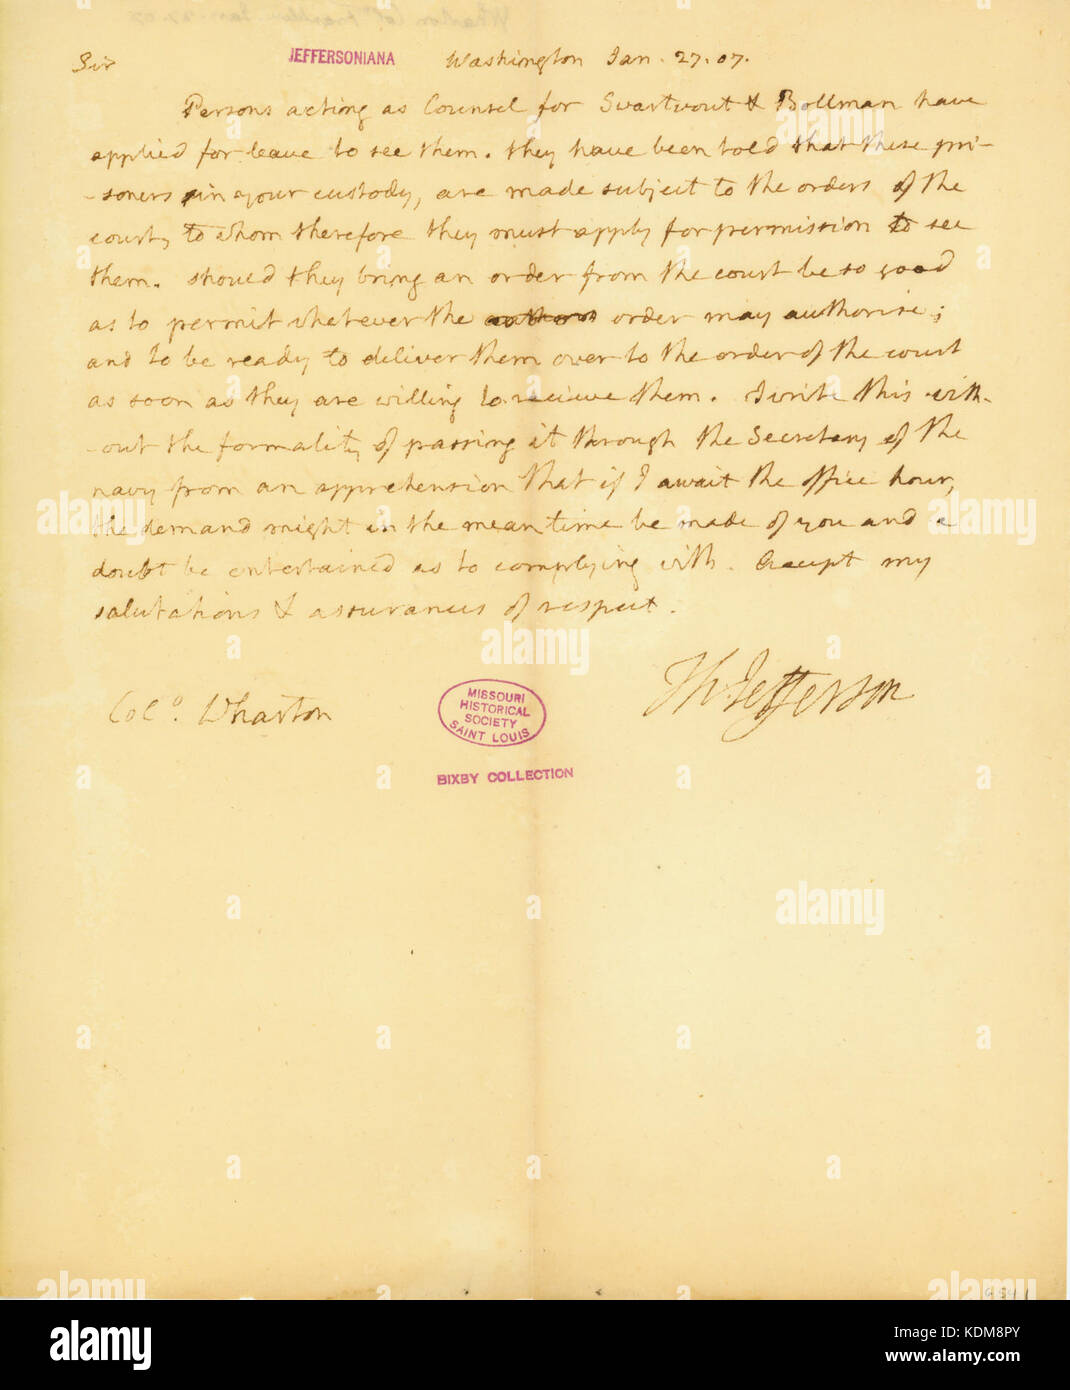 Sir JEFFERSONIANA Washington Jan. 27. 07.
Persons acting as Counsel for Swartwout & Bollman have
applied for leave to see them. they have been told that these pri-
-soners in your custody, are made subject to the orders of the
court, to whom therefore they must apply for permission to see
them. should they bring an order from the court be so good
as to permit whatever the order may authorise;
and to be ready to deliver them over to the order of the court
as soon as they are willing to recieve them. I write this with-
-out the formality of passing it through the Secretary of the
navy from an apprehension that if I await the office hour,
the demand might in the mean time be made of you and a
doubt be entertained as to complying with. Accept my
salutations & assurances of respect.
Th: Jefferson
Colo. Wharton
MISSOURI
HISTORICAL
SOCIETY
SAINT LOUIS
BIXBY COLLECTION
alamy
Image ID: KDM8PY
www.alamy.com